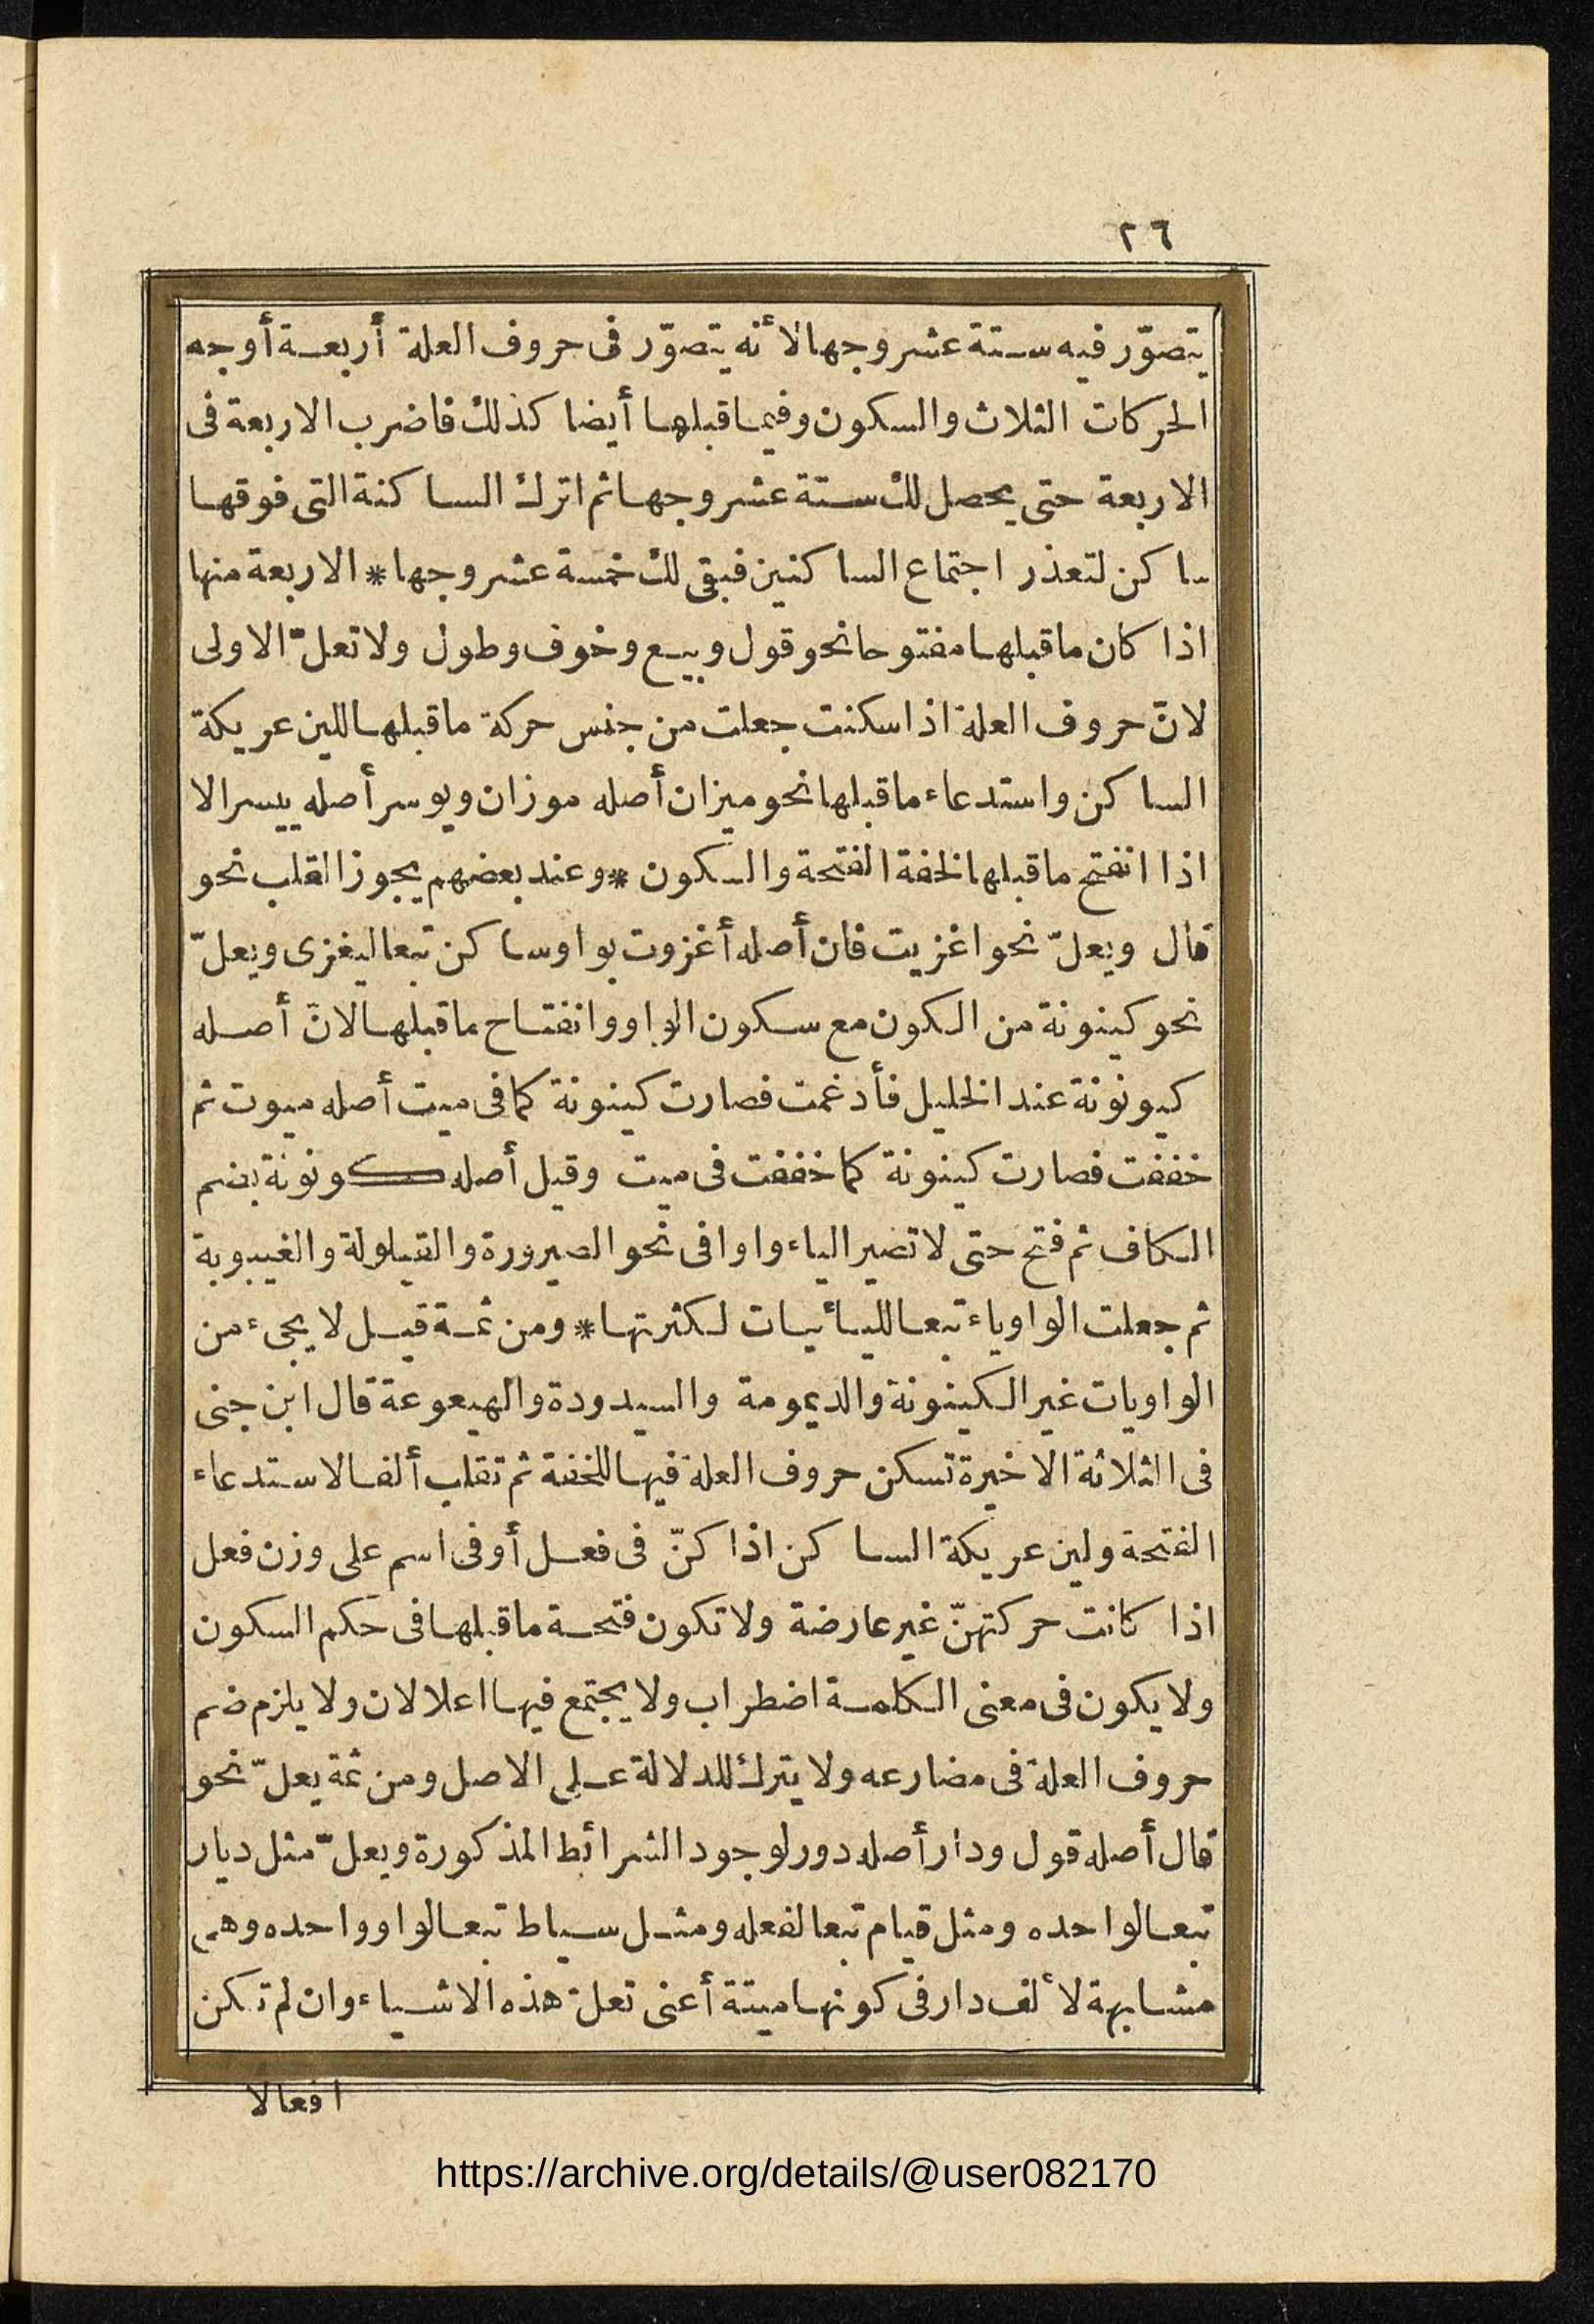 ٢٦
يتصوّر فيه ستة عشر وجها لأنه يتصوّر فى حروف العلة أربعة أوجه
الحركات الثلاث والسكون وفيما قبلها أيضا كذلك فاضرب الاربعة فى
الاربعة حتى يحصل لك ستة عشر وجها ثم اترك الساكنة التى فوقها
ساكن لتعذر اجتماع الساكنين فبقى لك خمسة عشر وجها * الاربعة منها
اذا كان ما قبلها مفتوحا نحو قول وبيع وخوف وطول ولا تعلّ الاولى
لانّ حروف العلة اذا سكنت جعلت من جنس حركة ما قبلها للين عريكة
الساكن واستدعاء ما قبلها نحو ميزان أصله موزان ويوسر أصله ييسر الا
اذا انفتح ما قبلها لخفة الفتحة والسكون * وعند بعضهم يجوز القلب نحو
قال ويعلّ نحو اغزيت فان أصله أغزوت بواو ساكن تبعا ليغزى ويعلّ
نحو كينونة من الكون مع سكون الواو وانفتاح ما قبلها لانّ أصله
كيونونة عند الخليل فأدغمت فصارت كينونة كما فى ميت أصله ميوت ثم
خففت فصارت كينونة كما خففت فى ميت وقيل أصله كونونة بضم
الكاف ثم فتح حتى لا تصير الياء واوا فى نحو الصيرورة والقيلولة والغيبوبة
ثم جعلت الواو ياء تبعا لليائيات لكثرتها * ومن ثمة قيل لا يجىء من
الواويات غير الكينونة والديمومة والسيدودة والهيعوعة قال ابن جنى
فى الثلاثة الاخيرة تسكن حروف العلة فيها للخفة ثم تقلب ألفا لاستدعاء
الفتحة ولين عريكة الساكن اذا كنّ فى فعل أو فى اسم على وزن فعل
اذا كانت حركتهنّ غير عارضة ولا تكون فتحة ما قبلها فى حكم السكون
ولا يكون فى معنى الكلمة اضطراب ولا يجتمع فيها اعلالان ولا يلزم ضم
حروف العلة فى مضارعه ولا يترك للدلالة على الاصل ومن ثمة يعلّ نحو
قال أصله قول ودار أصله دور لوجود الشرائط المذكورة ويعلّ مثل ديار
تبعا لواحده ومثل قيام تبعا لفعله ومثل سياط تبعا لواو واحده وهى
مشابهة لألف دار فى كونها ميتة أعنى تعلّ هذه الاشياء وان لم تكن
افعالا
https://archive.org/details/@user082170